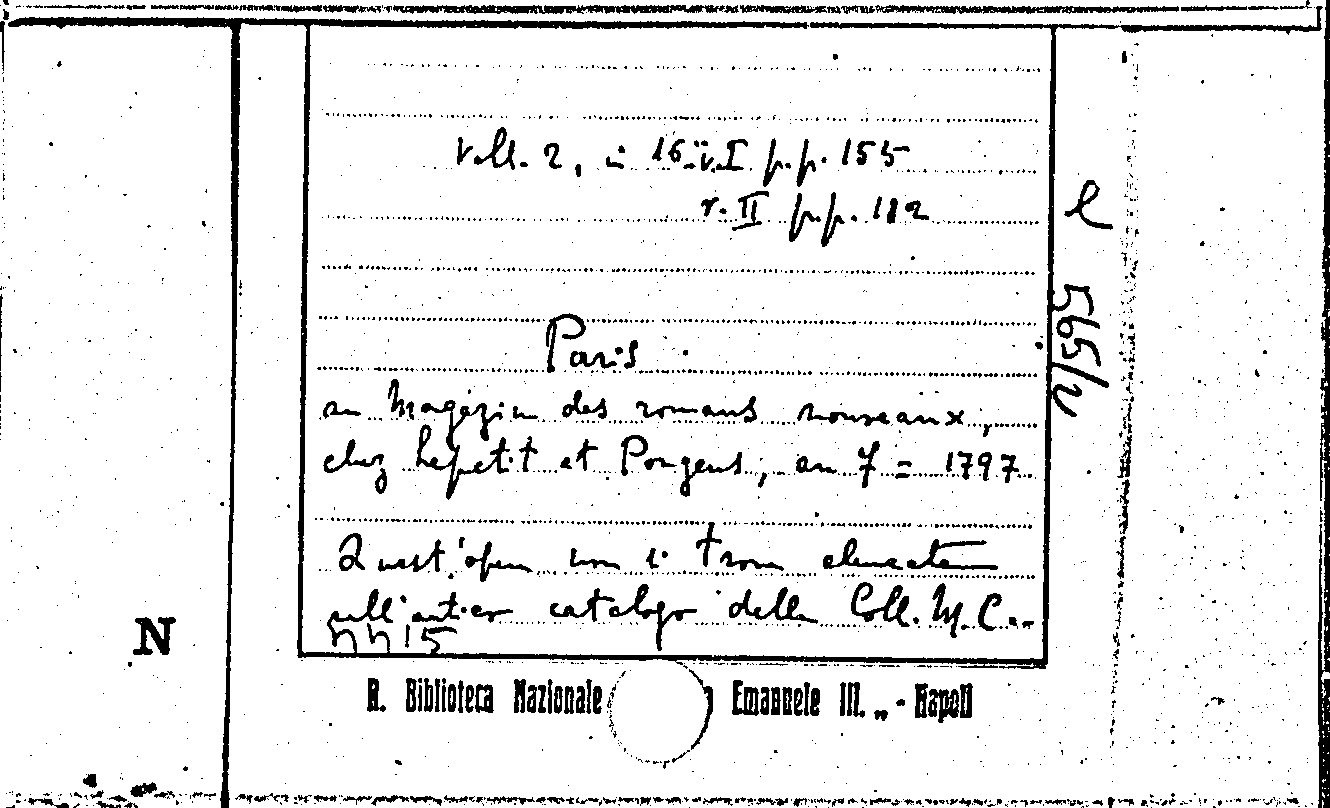 voll. 2, in 16.° v. I pp. 155
v. II pp. 182
Paris
au Magazin des romans nouveaux,
chez Lepetit et Pougens, an 7 = 1797
Quest'opera non si trova elencata
nell'antico catalogo della Coll. M. C.
nn15
l 565/2
N
R. Biblioteca Nazionale Emanuele III. „ - Napoli